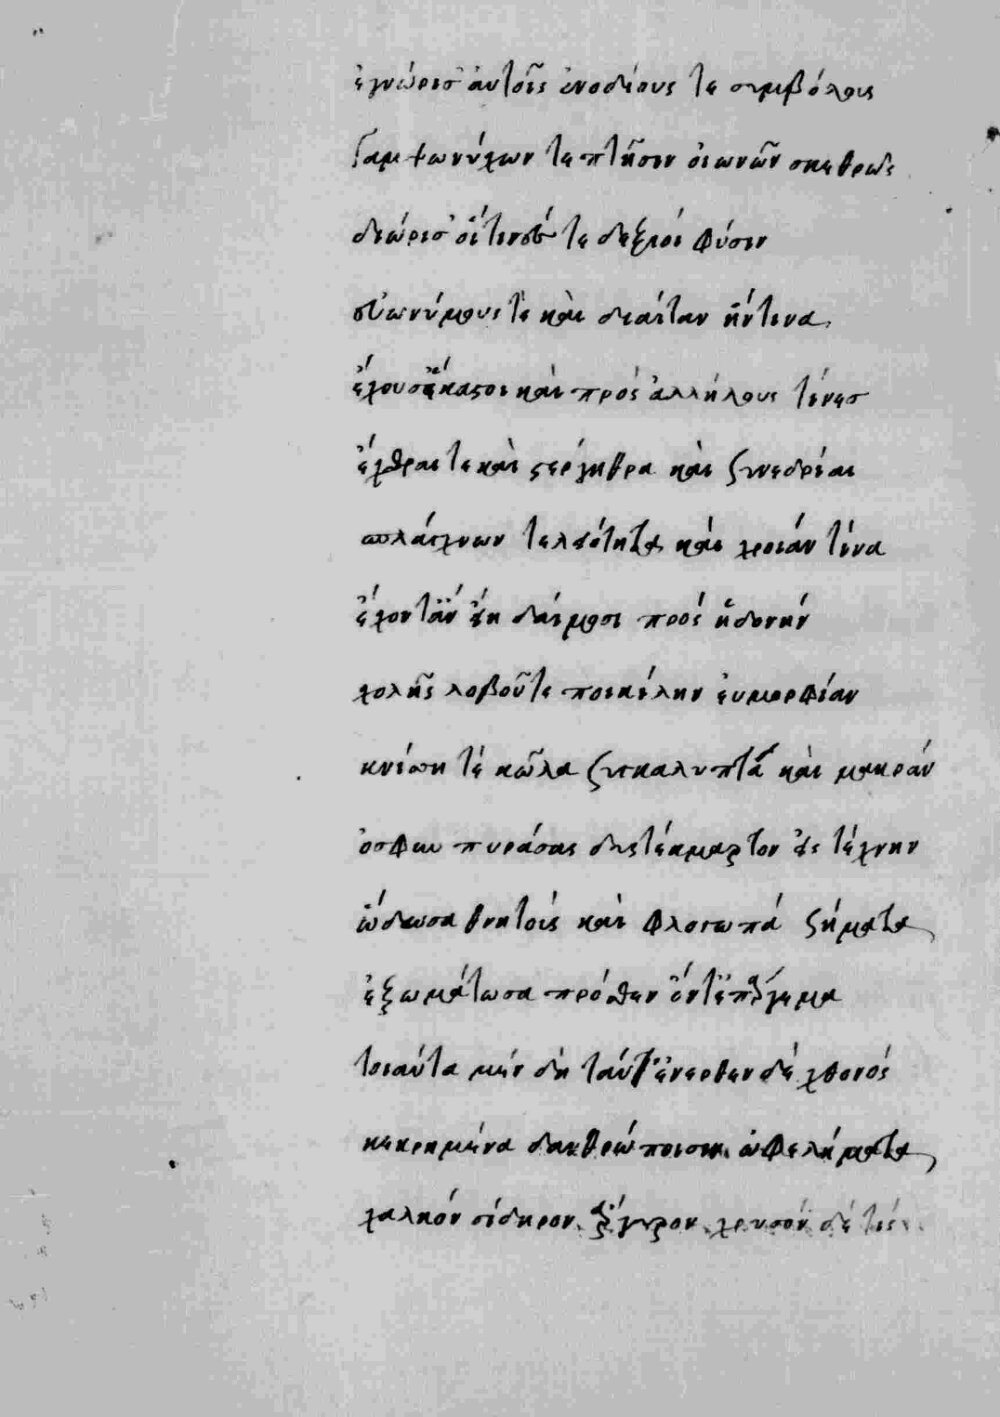 ἐγνώρισ' αὐτοῖς ἐνοδίους τε συμβόλους
Γαμψωνύχων τε πτῆσιν οἰωνῶν σκεθρῶς
διώρισ' οἵτινές τε δεξιοὶ φύσιν
εὐωνύμους τὲ καὶ δίαιταν ἥντινα
ἔχουσ' ἕκαστοι καὶ πρὸς ἀλλήλους τίνες
ἔχθραι τε καὶ στέργηθρα καὶ ξυνεδρίαι
σπλάγχνων τε λειότητα καὶ χροιάν τίνα
ἔχοντ' ἂν εἴη δαίμοσι πρὸς ἡδονήν
χολῆς λοβοῦ τε ποικίλην εὐμορφίαν
κνίσῃ τὲ κῶλα ξυγκαλυπτὰ καὶ μακράν
ὀσφῦν πυρώσας δυστέκμαρτον εἰς τέχνην
ὥδωσα θνητοὺς καὶ φλογωπά σήματα
ἐξωμάτωσα πρόσθεν ὄντ' ἐπάργεμα
τοιαῦτα μέν δὴ ταῦτ' ἔνερθεν δέ χθονός
κεκρυμένα δ' ἀνθρώποισιν ὠφελήματα
χαλκόν σίδηρον ἄργυρον χρυσόν δέ τίς